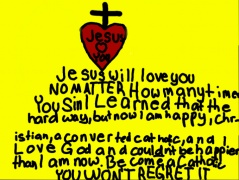 Jesus
♥
you
Jesus will love you
NO MATTER How many times
You Sin I Learned that the
hard way, but now I am happy, chr-
istian, a converted catholic, and I
Love God and couldnt be happier
than I am now. Become a Catholic
YOU WON'T REGRET IT